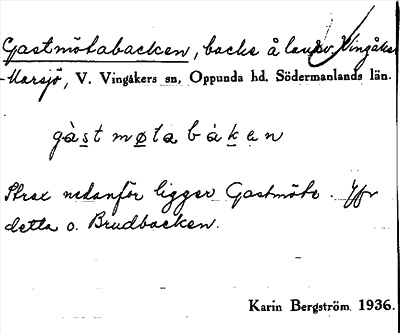 Gastmötabacken, backe å landsv. Vingåker
-Marsjö, V. Vingåkers sn, Oppunda hd. Södermanlands län.
gàst møta bàken
Strax nedanför ligger Gastmöte. Jfr
detta o. Brudbacken.
Karin Bergström 1936.